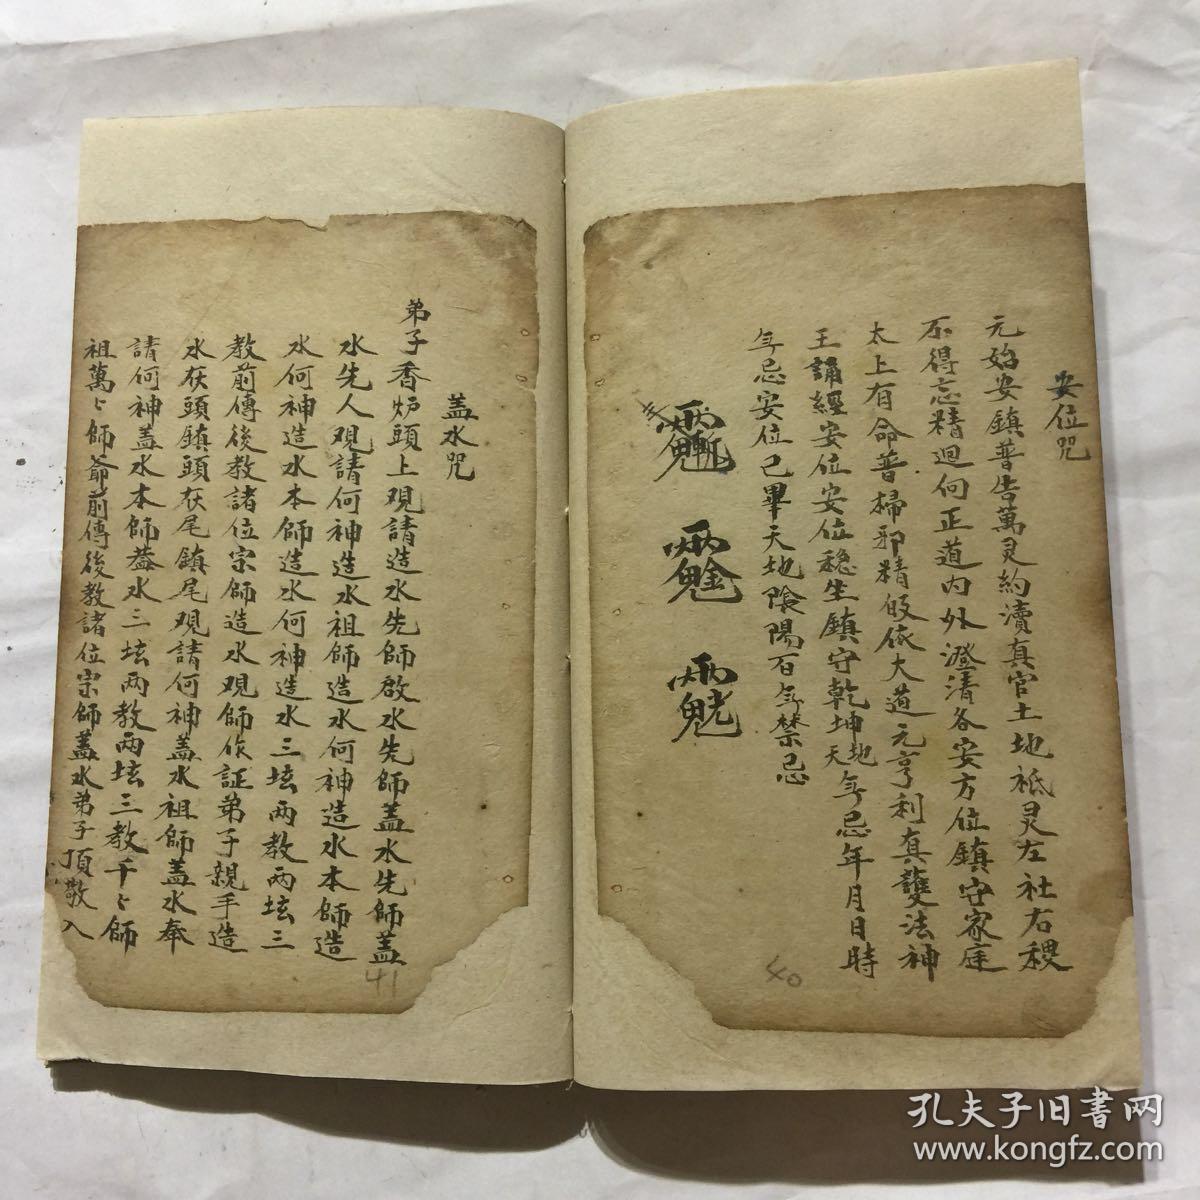 安位咒
元始安鎮普告萬灵約瀆真官土地祇灵左社右稷
不得忘精迴向正道內外澄清各安方位鎮守家庭
太上有命普掃邪精皈依大道元亨利真護法神
王誦經安位安位穩坐鎮守乾坤地天年忌年月日時
年忌安位已畢天地陰陽百年禁忌
40
盖水咒
弟子香炉頭上观請造水先師啟水先師盖水先師盖
水先人观請何神造水祖師造水何神造水本師造
水何神造水本師造水何神造水三坛两教两坛三
教前傳後教諸位宗師造水观師作証弟子親手造
水在頭鎮頭在尾鎮尾观請何神盖水祖師盖水奉
請何神盖水本師盖水三坛两教两坛三教千々師
祖萬々師爺前傳後教諸位宗師盖水弟子頂敬入
41
孔夫子旧書网
www.kongfz.com